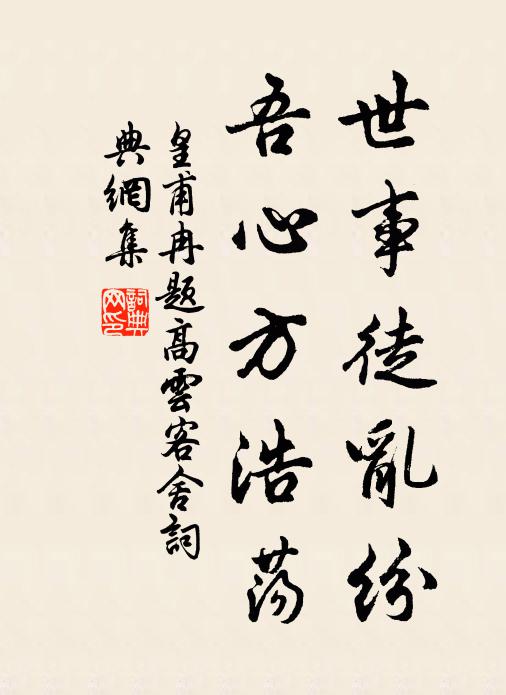 世事徒亂紛
吾心方浩荡
皇甫冉題高雲客舍詞
典網集
詞典網印